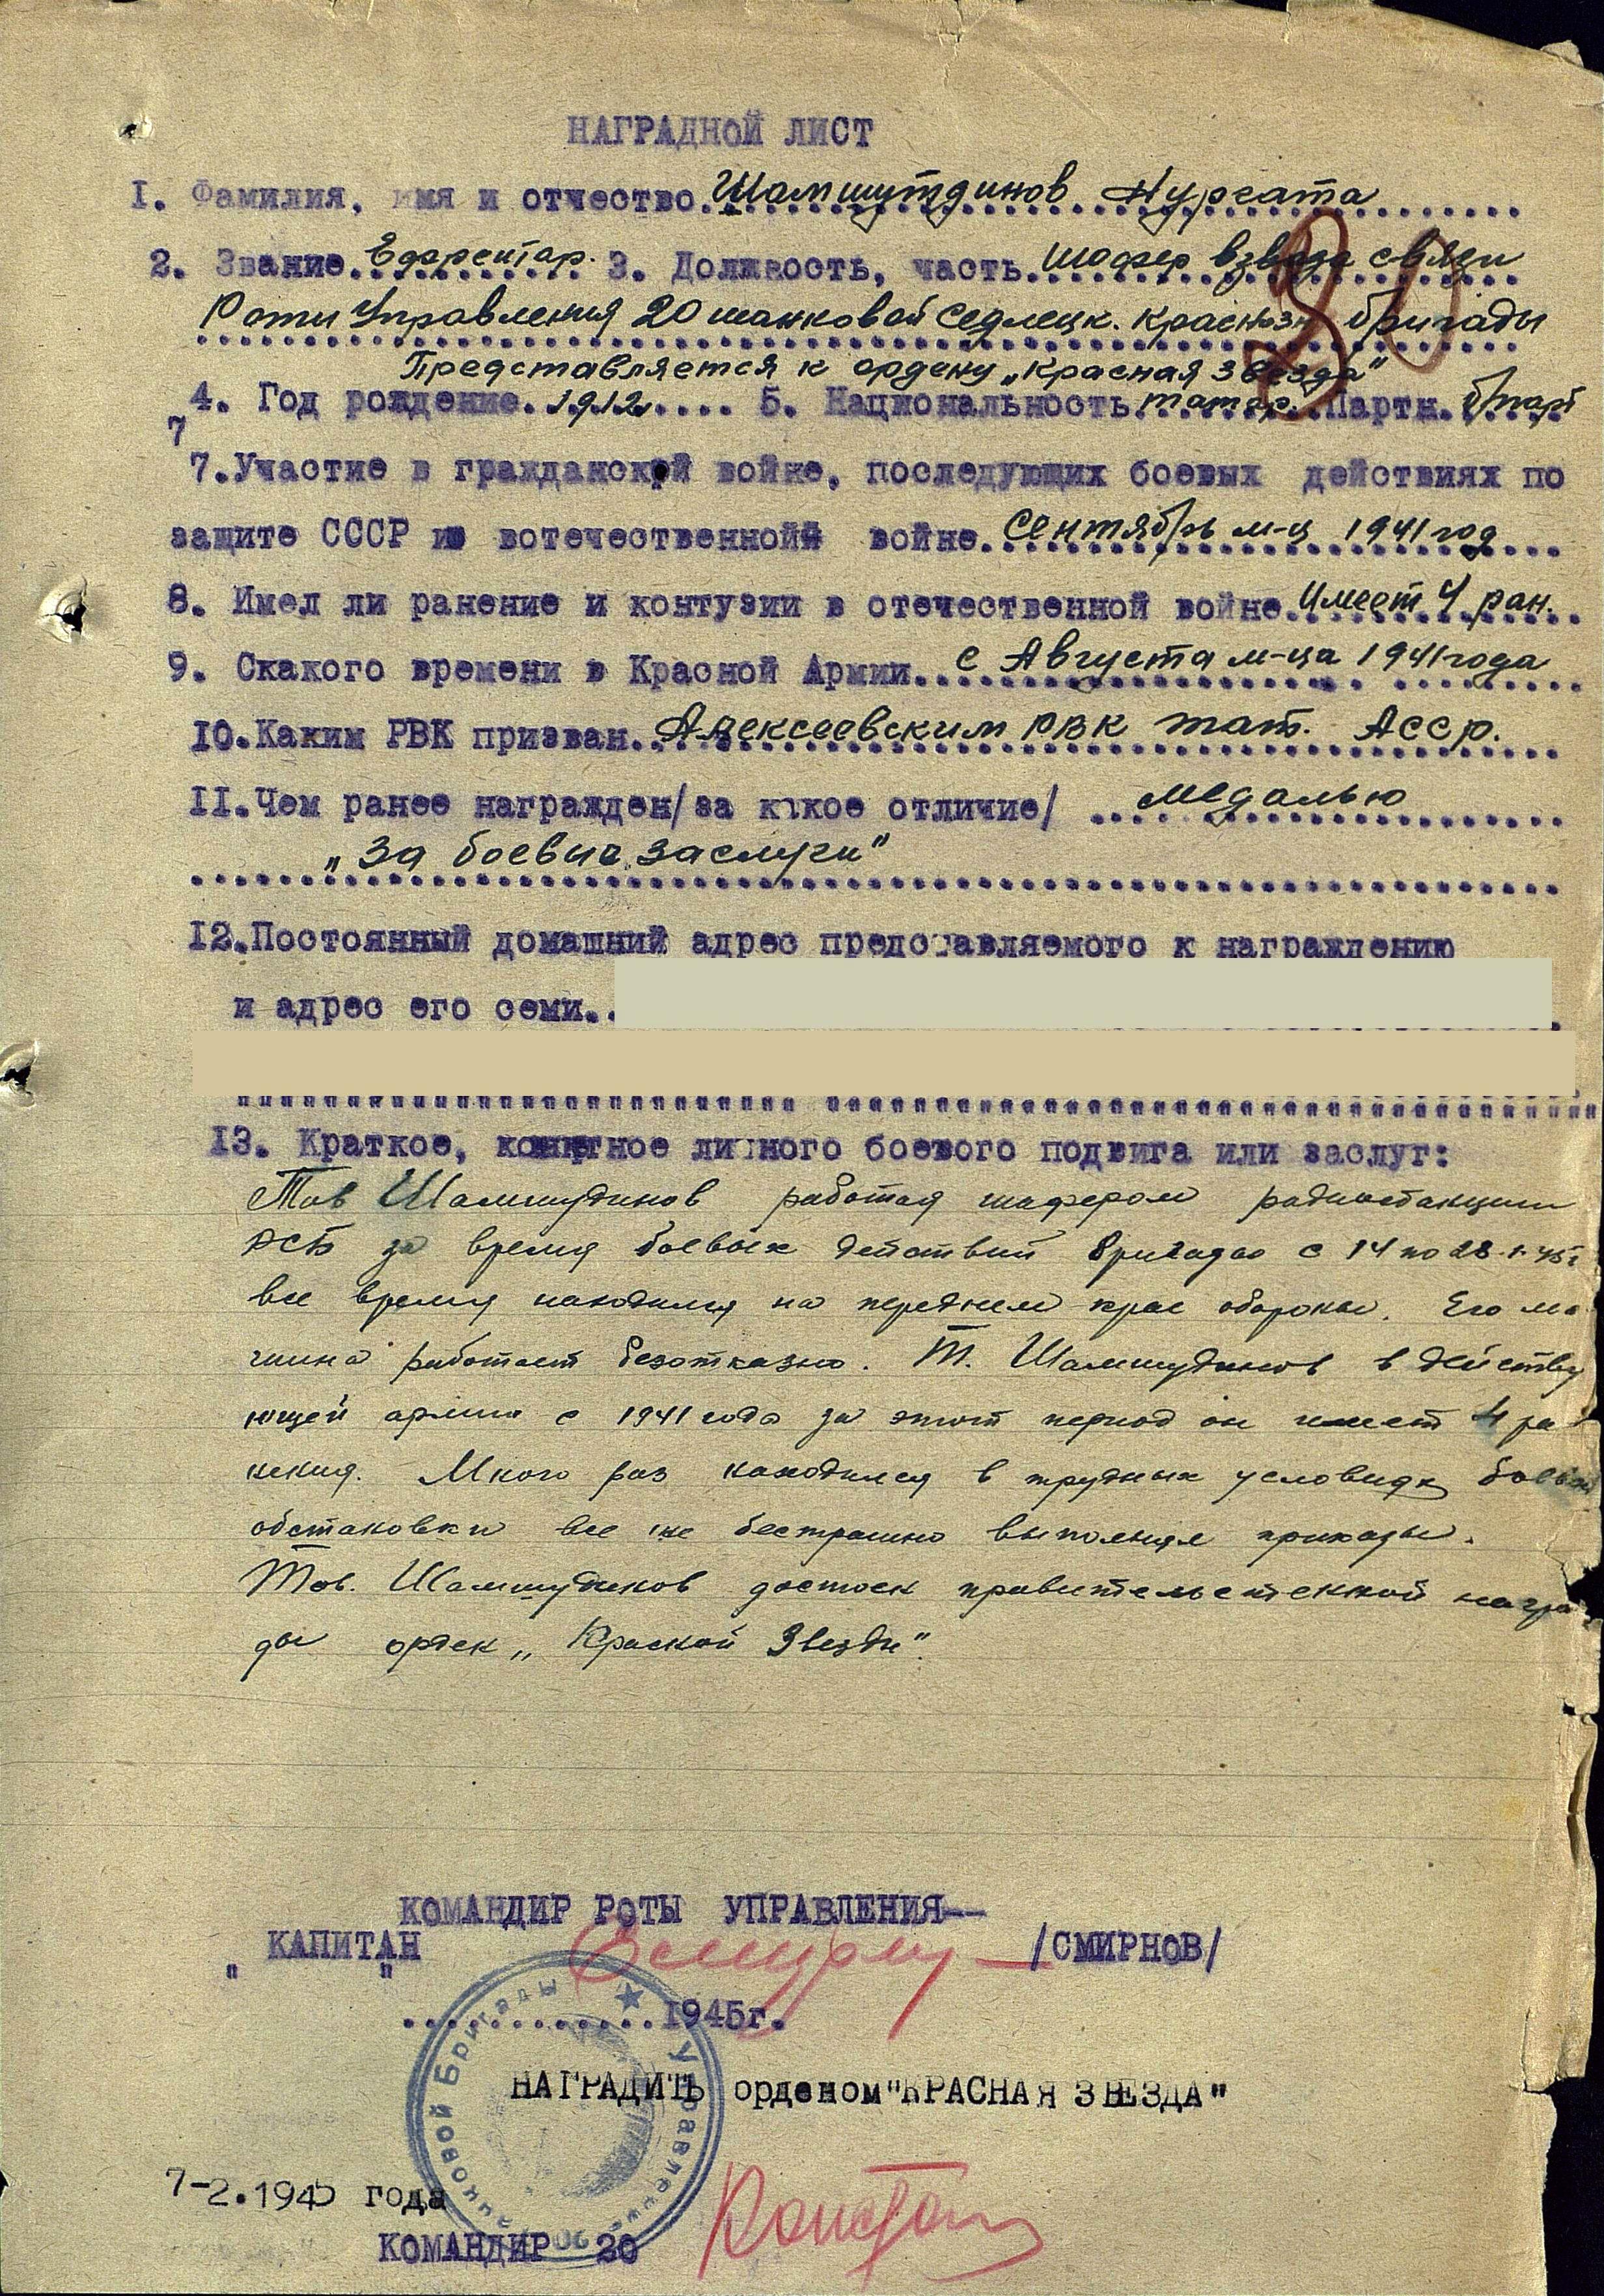 НАГРАДНОЙ ЛИСТ
I. Фамилия, имя и отчество Шамшутдинов Нургата
2. Звание Ефрейтор. 3. Должность, часть шофер взвода связи
Роти Управления 20 танковой Седлецк. Краснозн бригады
Представляется к ордену „Красная звезда"
4. Год рождение 1912 5. Национальность татар. Партн. б/парт
7
7.Участие в гражданской войне, последующих боевых действиях по
защите СССР и вотечественной войне. Сентябрь м-ц 1941 год
8. Имел ли ранение и контузии в отечественной войне. Имеет 4 ран.
9. Скакого времени в Красной Армии С Августа м-ца 1941 года
10.Каким РВК призван. Алексеевским РВК тат. АССР.
II.Чем ранее награжден/за какое отличие/ медалью
„За боевые заслуги"
12.Постоянный домашний адрес представляемого к награждению
и адрес его семи..
13. Краткое, личного боевого подвига или заслуг:
Тов Шамшудинов работая шафером радиостанции
РСБ за время боевых действий бригады с 14 по 28.1.45г
все время находился на переднем крае обороны. Его ма
шина работает безотказно. Т. Шамшудинов в действу
ющей армии с 1941 года за этот период он имеет 4 ра
нения. Много раз находился в трудных условиях боевой
обстановки все же бестрашно выполнял приказы.
Тов. Шамшудинов достоен правительственной награ
ды орден „Красной Звезды".
КОМАНДИР РОТЫ УПРАВЛЕНИЯ--
"КАПИТАН" /СМИРНОВ/
1945г.
НАГРАДИТЬ орденом "КРАСНАЯ ЗВЕЗДА"
7-2.1945 года
КОМАНДИР 20
80
Управление Танковой Бригады